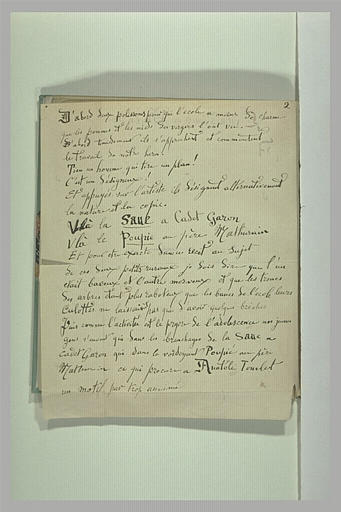 2
D'abord deux polissons pour qui l'école a moins de charme
que les pommes et les nids des vergers l'ont vu.
D'abord timidement ils s'approchent et commentent
le travail de notre héros!
Tien un homme qui tire un plan!
C'est un Désigneur!
Et appuyés sur l'artiste ils désignent alternativement
la nature et la copie.
V'là la Saule a Cadet Garon
V'là le Poupié au père Mathurin
Et pour être exacte dans ce récit au sujet
de ces deux petits ruraux je dois dire que l'un
était baveux et l'autre morveux et que les troncs
des arbres étant plus raboteux que les bancs de l'école leurs
culottes ne laissaient pas que d'avoir quelques brèches
Puis comme l'activité est le propre de l'adolescence nos jeunes
gens s'en vont qui dans les branchages de la Saule a
Cadet Garon qui dans le verdoyant Poupié au père
Mathurin ce qui procure a Anatole Tourlet
un motif par trop animé